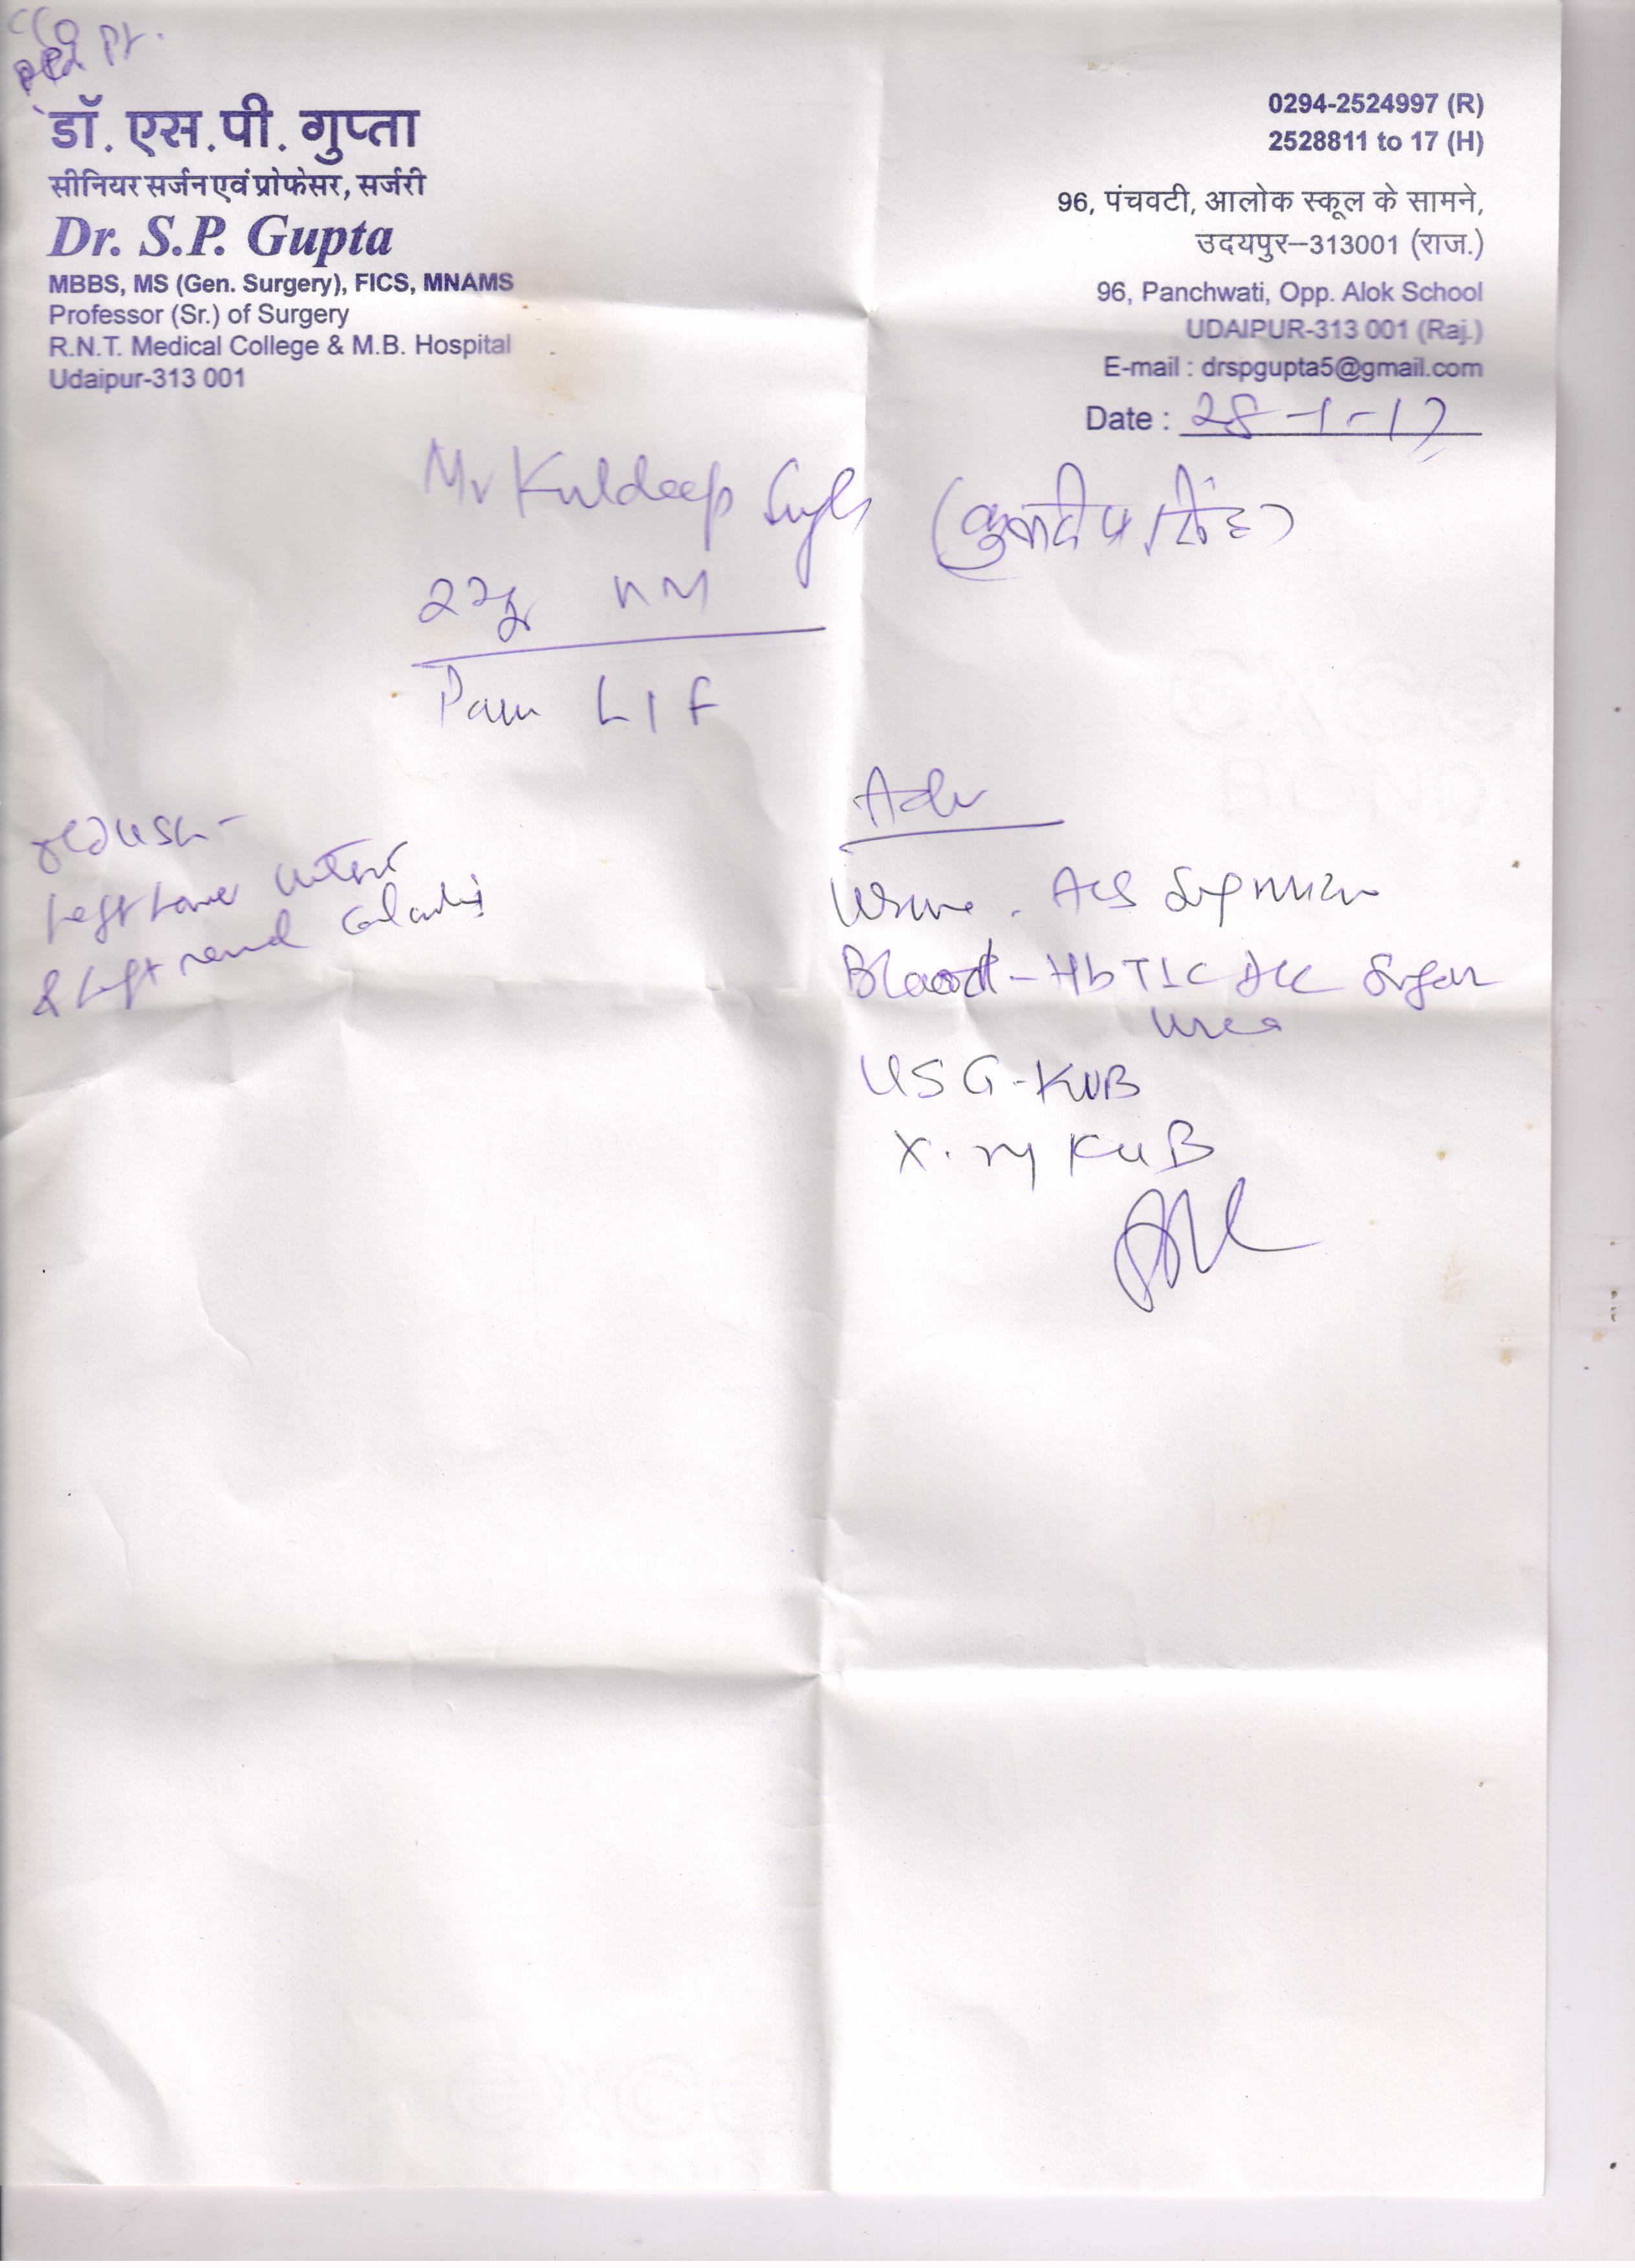 Old Pt.
डॉ. एस. पी. गुप्ता
सीनियर सर्जन एवं प्रोफेसर, सर्जरी
Dr. S.P. Gupta
MBBS, MS (Gen. Surgery), FICS, MNAMS
Professor (Sr.) of Surgery
R.N.T. Medical College & M.B. Hospital
Udaipur-313 001
0294-2524997 (R)
2528811 to 17 (H)
96, पंचवटी, आलोक स्कूल के सामने,
उदयपुर–313001 (राज.)
96, Panchwati, Opp. Alok School
UDAIPUR-313 001 (Raj.)
E-mail : drspgupta5@gmail.com
Date : 28-1-17
Mr Kuldeep Singh (कुलदीप सिंह)
Pain LIF
Left lower
& Left renal
Adv
Urine
Blood - Hb TLC DLC Sugar
Urea
USG-KUB
X-ray KUB